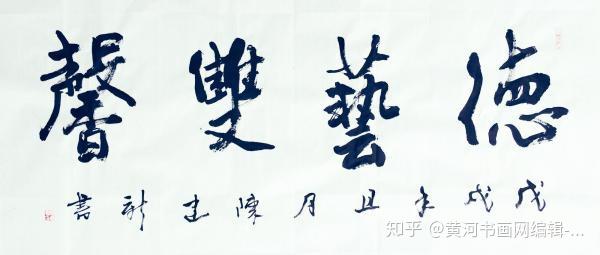 德藝雙馨
戊戌年且月陳書
知乎 @黄河书画网编辑-...